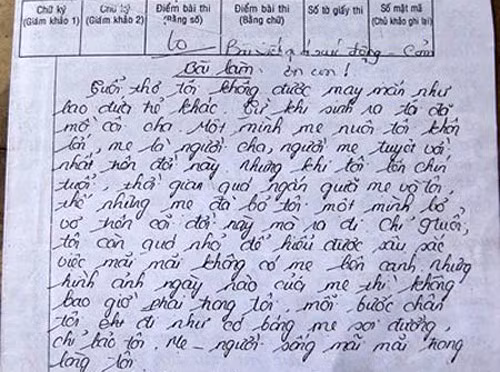 Chữ ký Chữ ký Điểm bài thi Điểm bài thi Số tờ giấy thi Số mật mã
(Giám khảo 1) (Giám khảo 2) (Bằng số) (Bằng chữ) (Chủ khảo ghi lại)
10 Bài viết quá xúc động - Cảm
Bài làm ơn con!
Tuổi thơ tôi không được may mắn như
bao đứa trẻ khác. Từ khi sinh ra tôi đã
mồ côi cha. Một minh mẹ nuôi tôi khôn
lớn, mẹ là người cha, người mẹ tuyệt vời
nhất trên đời này. Nhưng khi tôi lên chín
tuổi, thời gian quá ngắn gười mẹ và tôi,
thế nhưng mẹ đã bỏ tôi một minh bơ
vơ trên cõi đời này mà ra đi. Chỉ 9 tuổi,
tôi còn quá nhỏ để hiểu được sâu sắc
việc mãi mãi không có mẹ bên cạnh, nhưng
hình ảnh ngày nào của mẹ thì không
bao giờ phai trong tôi, mỗi bước chân
tôi đi như có bóng mẹ soi đường,
chỉ bảo tôi. Mẹ - người sống mãi mãi trong
lòng tôi.